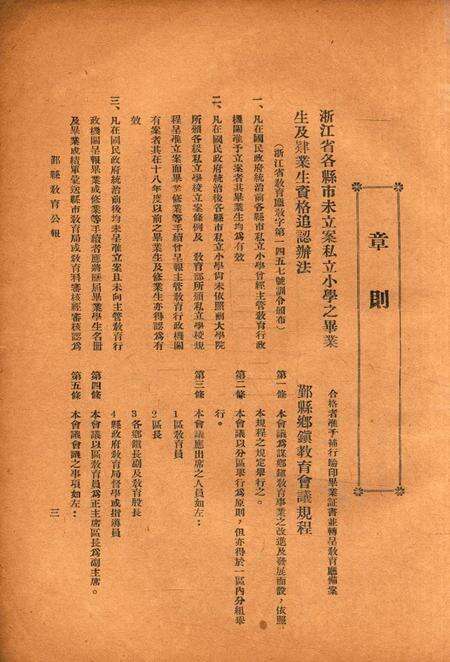 章則
浙江省各縣市未立案私立小學之畢業
生及肄業生資格追認辦法
（浙江省敎育廳敎字第一四五七號訓令頒布）
一、凡在國民政府統治前各縣市私立小學曾經主管敎育行政
機關准予立案者其畢業生均爲有效
二、凡在國民政府統治後各縣市私立小學尙未依照前大學院
所頒各級私立學校立案條例及　敎育部所頒私立學校規
程呈准立案而畢業修業等手續曾呈報主管敎育行政機關
有案者其在十八年度以前之畢業生及修業生亦得認爲有
效
三、凡在國民政府統治前後均未呈准立案且未向主管敎育行
政機關呈報畢業或修業等手續者應將歷屆畢業學生名冊
及畢業成績單彙送縣市敎育局或敎育科審核經審核認爲
合格者准予補行驗印畢業証書並轉呈敎育廳備案
鄞縣鄉鎭敎育會議規程
第一條　本會議爲謀鄉鎭敎育事業之改進及發展而設，依照
本規程之規定舉行之。
第二條　本會議以分區舉行爲原則，但亦得於一區內分組舉
行。
第三條　本會議應出席之人員如左：
1區敎育員
2區長
3各鄉鎭長副及敎育股長
4縣政府敎育局督學或指導員
第四條　本會議以區敎育員爲正主席區長爲副主席。
第五條　本會議會議之事項如左：
鄞縣敎育公報
三